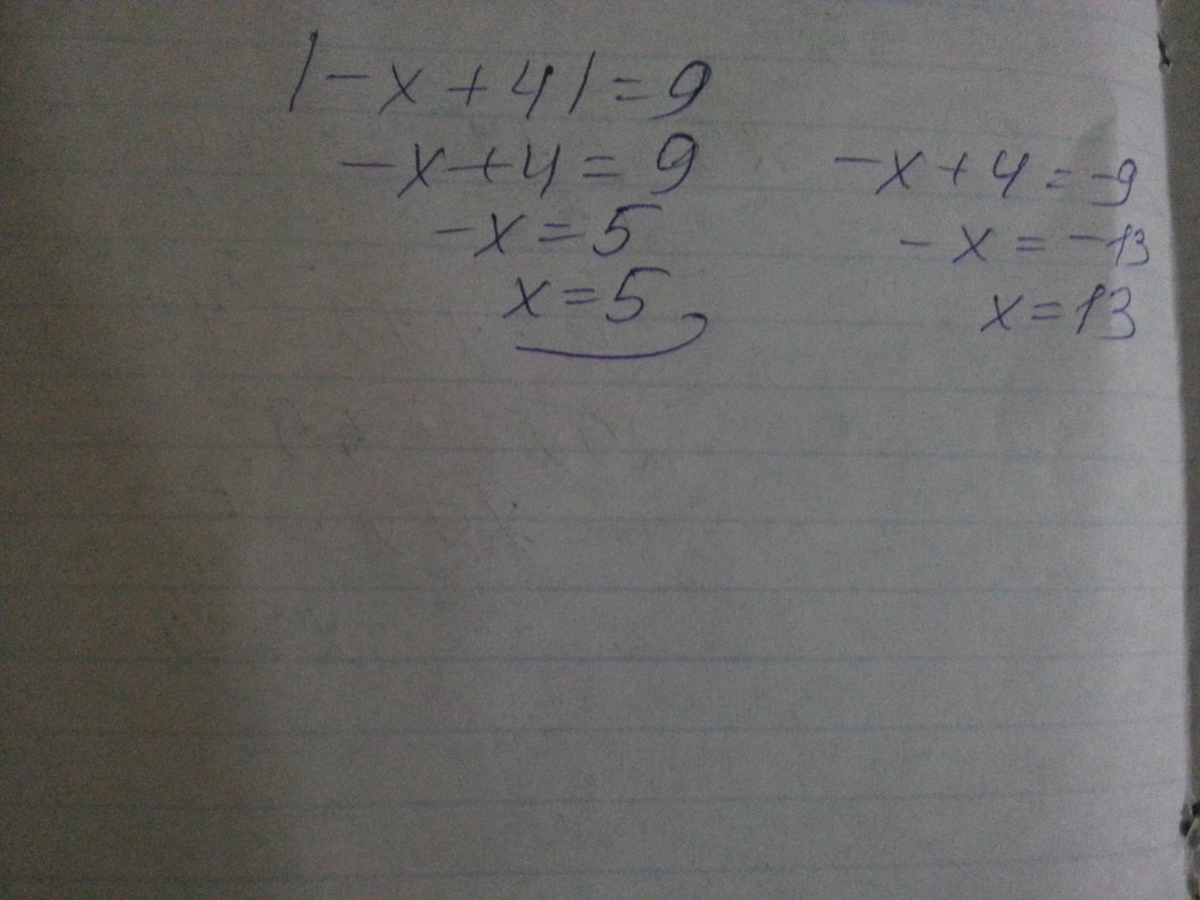 |-x+4|=9
-x+4=9
-x=5
x=5
-x+4=-9
-x=-13
x=13